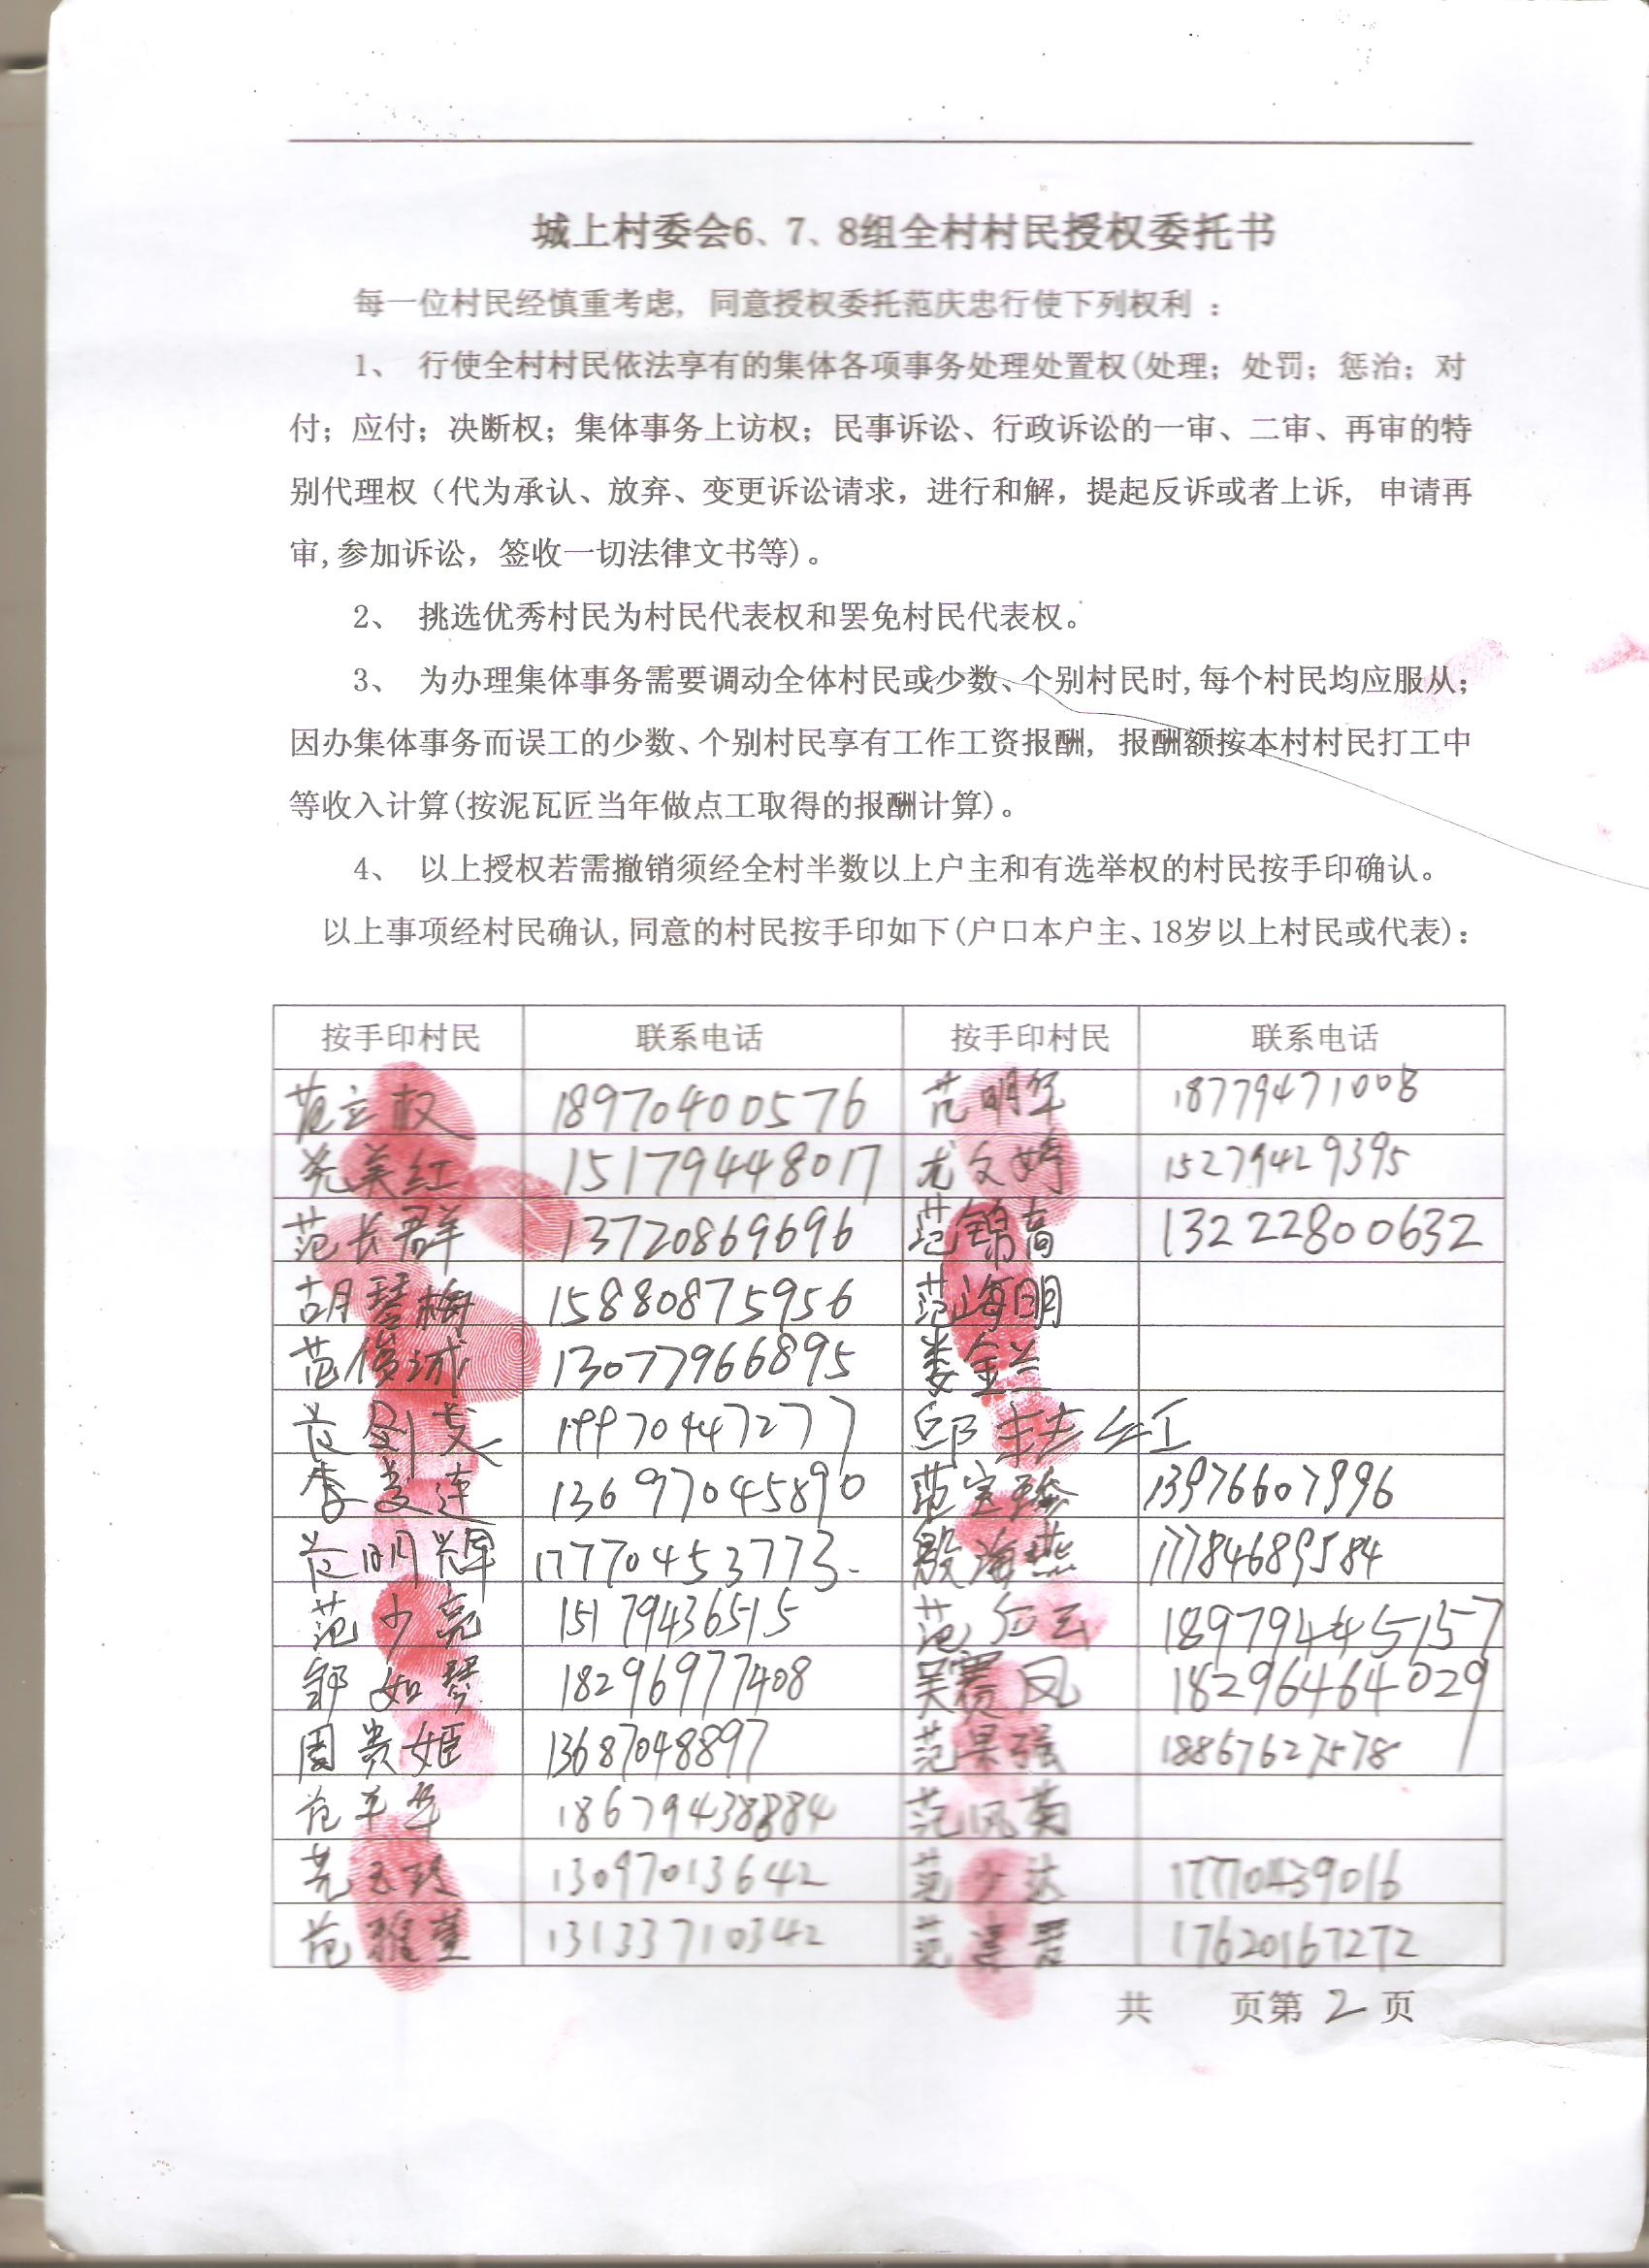 城上村委会6、7、8组全村村民授权委托书
每一位村民经慎重考虑, 同意授权委托范庆忠行使下列权利：
1、 行使全村村民依法享有的集体各项事务处理处置权(处理；处罚；惩治；对
付；应付；决断权；集体事务上访权；民事诉讼、行政诉讼的一审、二审、再审的特
别代理权（代为承认、放弃、变更诉讼请求，进行和解，提起反诉或者上诉, 申请再
审,参加诉讼，签收一切法律文书等)。
2、 挑选优秀村民为村民代表权和罢免村民代表权。
3、 为办理集体事务需要调动全体村民或少数、个别村民时,每个村民均应服从；
因办集体事务而误工的少数、个别村民享有工作工资报酬, 报酬额按本村村民打工中
等收入计算(按泥瓦匠当年做点工取得的报酬计算)。
4、 以上授权若需撤销须经全村半数以上户主和有选举权的村民按手印确认。
以上事项经村民确认,同意的村民按手印如下(户口本户主、18岁以上村民或代表)：
按手印村民 联系电话 按手印村民 联系电话
范立权 18970400576 范明华 18779471008
美红 15179448017 尤文婷 15279429395
范长群 13720869696 范锦高 13222800632
胡琴梅 15880875956 范海明
范俊诚 13077966895 娄金兰
范剑 19970447277 邱桂红
李爱连 13697045890 范宝 13976607996
范明辉 17770453773 殷海燕 17784689584
范少亮 15179436515 范红云 18979445157
邹如琴 18296977408 吴赛凤 18296464029
周贵姬 13687048897 范果强 18867627578
范 华 18679438884 范凤菊
13097013642 范少达 17770439016
范雅 13133710342 范 君 17620167272
共 页第 2 页